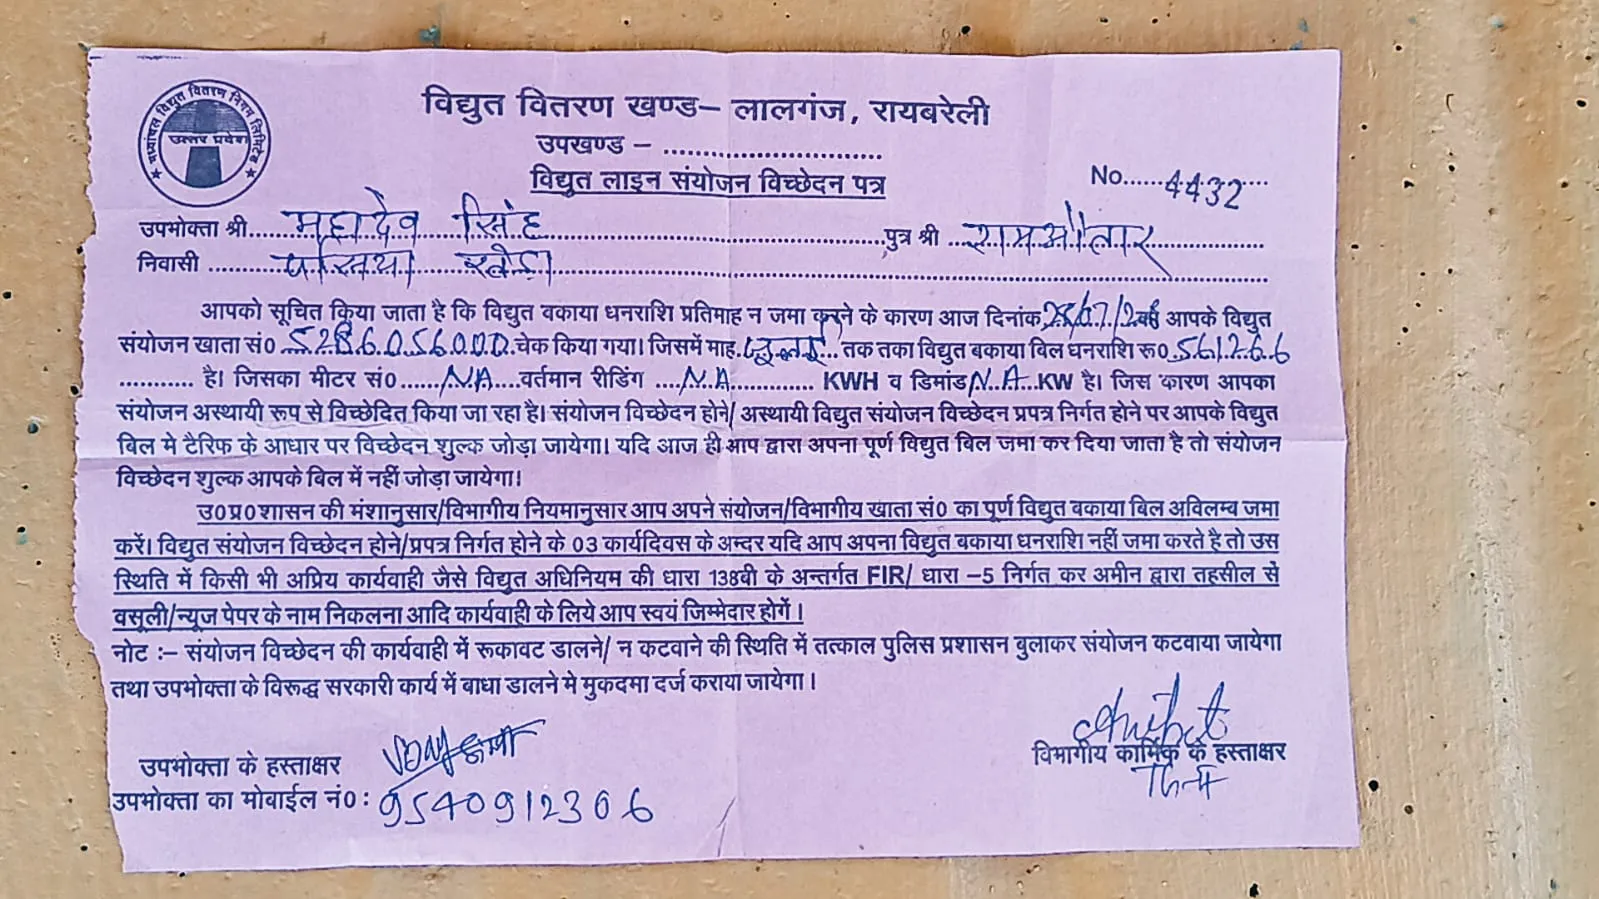 मध्यांचल विद्युत वितरण निगम लिमिटेड
उत्तर प्रदेश
विद्युत वितरण खण्ड– लालगंज, रायबरेली
उपखण्ड – ........................................
विद्युत लाइन संयोजन विच्छेदन पत्र
No......4432....
उपभोक्ता श्री......महादेव सिंह......पुत्र श्री ...रामऔतार......
निवासी ............ खेड़ा............
आपको सूचित किया जाता है कि विद्युत वकाया धनराशि प्रतिमाह न जमा करने के कारण आज दिनांक आपके विद्युत
संयोजन खाता सं0 ...5286056000...चेक किया गया। जिसमें माह..जुलाई...तक तका विद्युत बकाया विल धनराशि रू0.561266
............ है। जिसका मीटर सं0......NA....वर्तमान रीडिंग ....N.A............ KWH व डिमांड N.A...KW है। जिस कारण आपका
संयोजन अस्थायी रूप से विच्छेदित किया जा रहा है। संयोजन विच्छेदन होने/ अस्थायी विद्युत संयोजन विच्छेदन प्रपत्र निर्गत होने पर आपके विद्युत
बिल मे टैरिफ के आधार पर विच्छेदन शुल्क जोड़ा जायेगा। यदि आज ही आप द्वारा अपना पूर्ण विद्युत बिल जमा कर दिया जाता है तो संयोजन
विच्छेदन शुल्क आपके बिल में नहीं जोड़ा जायेगा।
उ0प्र0शासन की मंशानुसार/विभागीय नियमानुसार आप अपने संयोजन/विभागीय खाता सं0 का पूर्ण विद्युत बकाया बिल अविलम्ब जमा
करें। विद्युत संयोजन विच्छेदन होने/प्रपत्र निर्गत होने के 03 कार्यदिवस के अन्दर यदि आप अपना विद्युत बकाया धनराशि नहीं जमा करते है तो उस
स्थिति में किसी भी अप्रिय कार्यवाही जैसे विद्युत अधिनियम की धारा 138बी के अन्तर्गत FIR/ धारा –5 निर्गत कर अमीन द्वारा तहसील से
वसूली/न्यूज पेपर के नाम निकलना आदि कार्यवाही के लिये आप स्वयं जिम्मेदार होगें।
नोट :– संयोजन विच्छेदन की कार्यवाही में रूकावट डालने/ न कटवाने की स्थिति में तत्काल पुलिस प्रशासन बुलाकर संयोजन कटवाया जायेगा
तथा उपभोक्ता के विरूद्ध सरकारी कार्य में बाधा डालने मे मुकदमा दर्ज कराया जायेगा।
उपभोक्ता के हस्ताक्षर
विभागीय कार्मिक के हस्ताक्षर
उपभोक्ता का मोबाईल नं0 : 9540912306